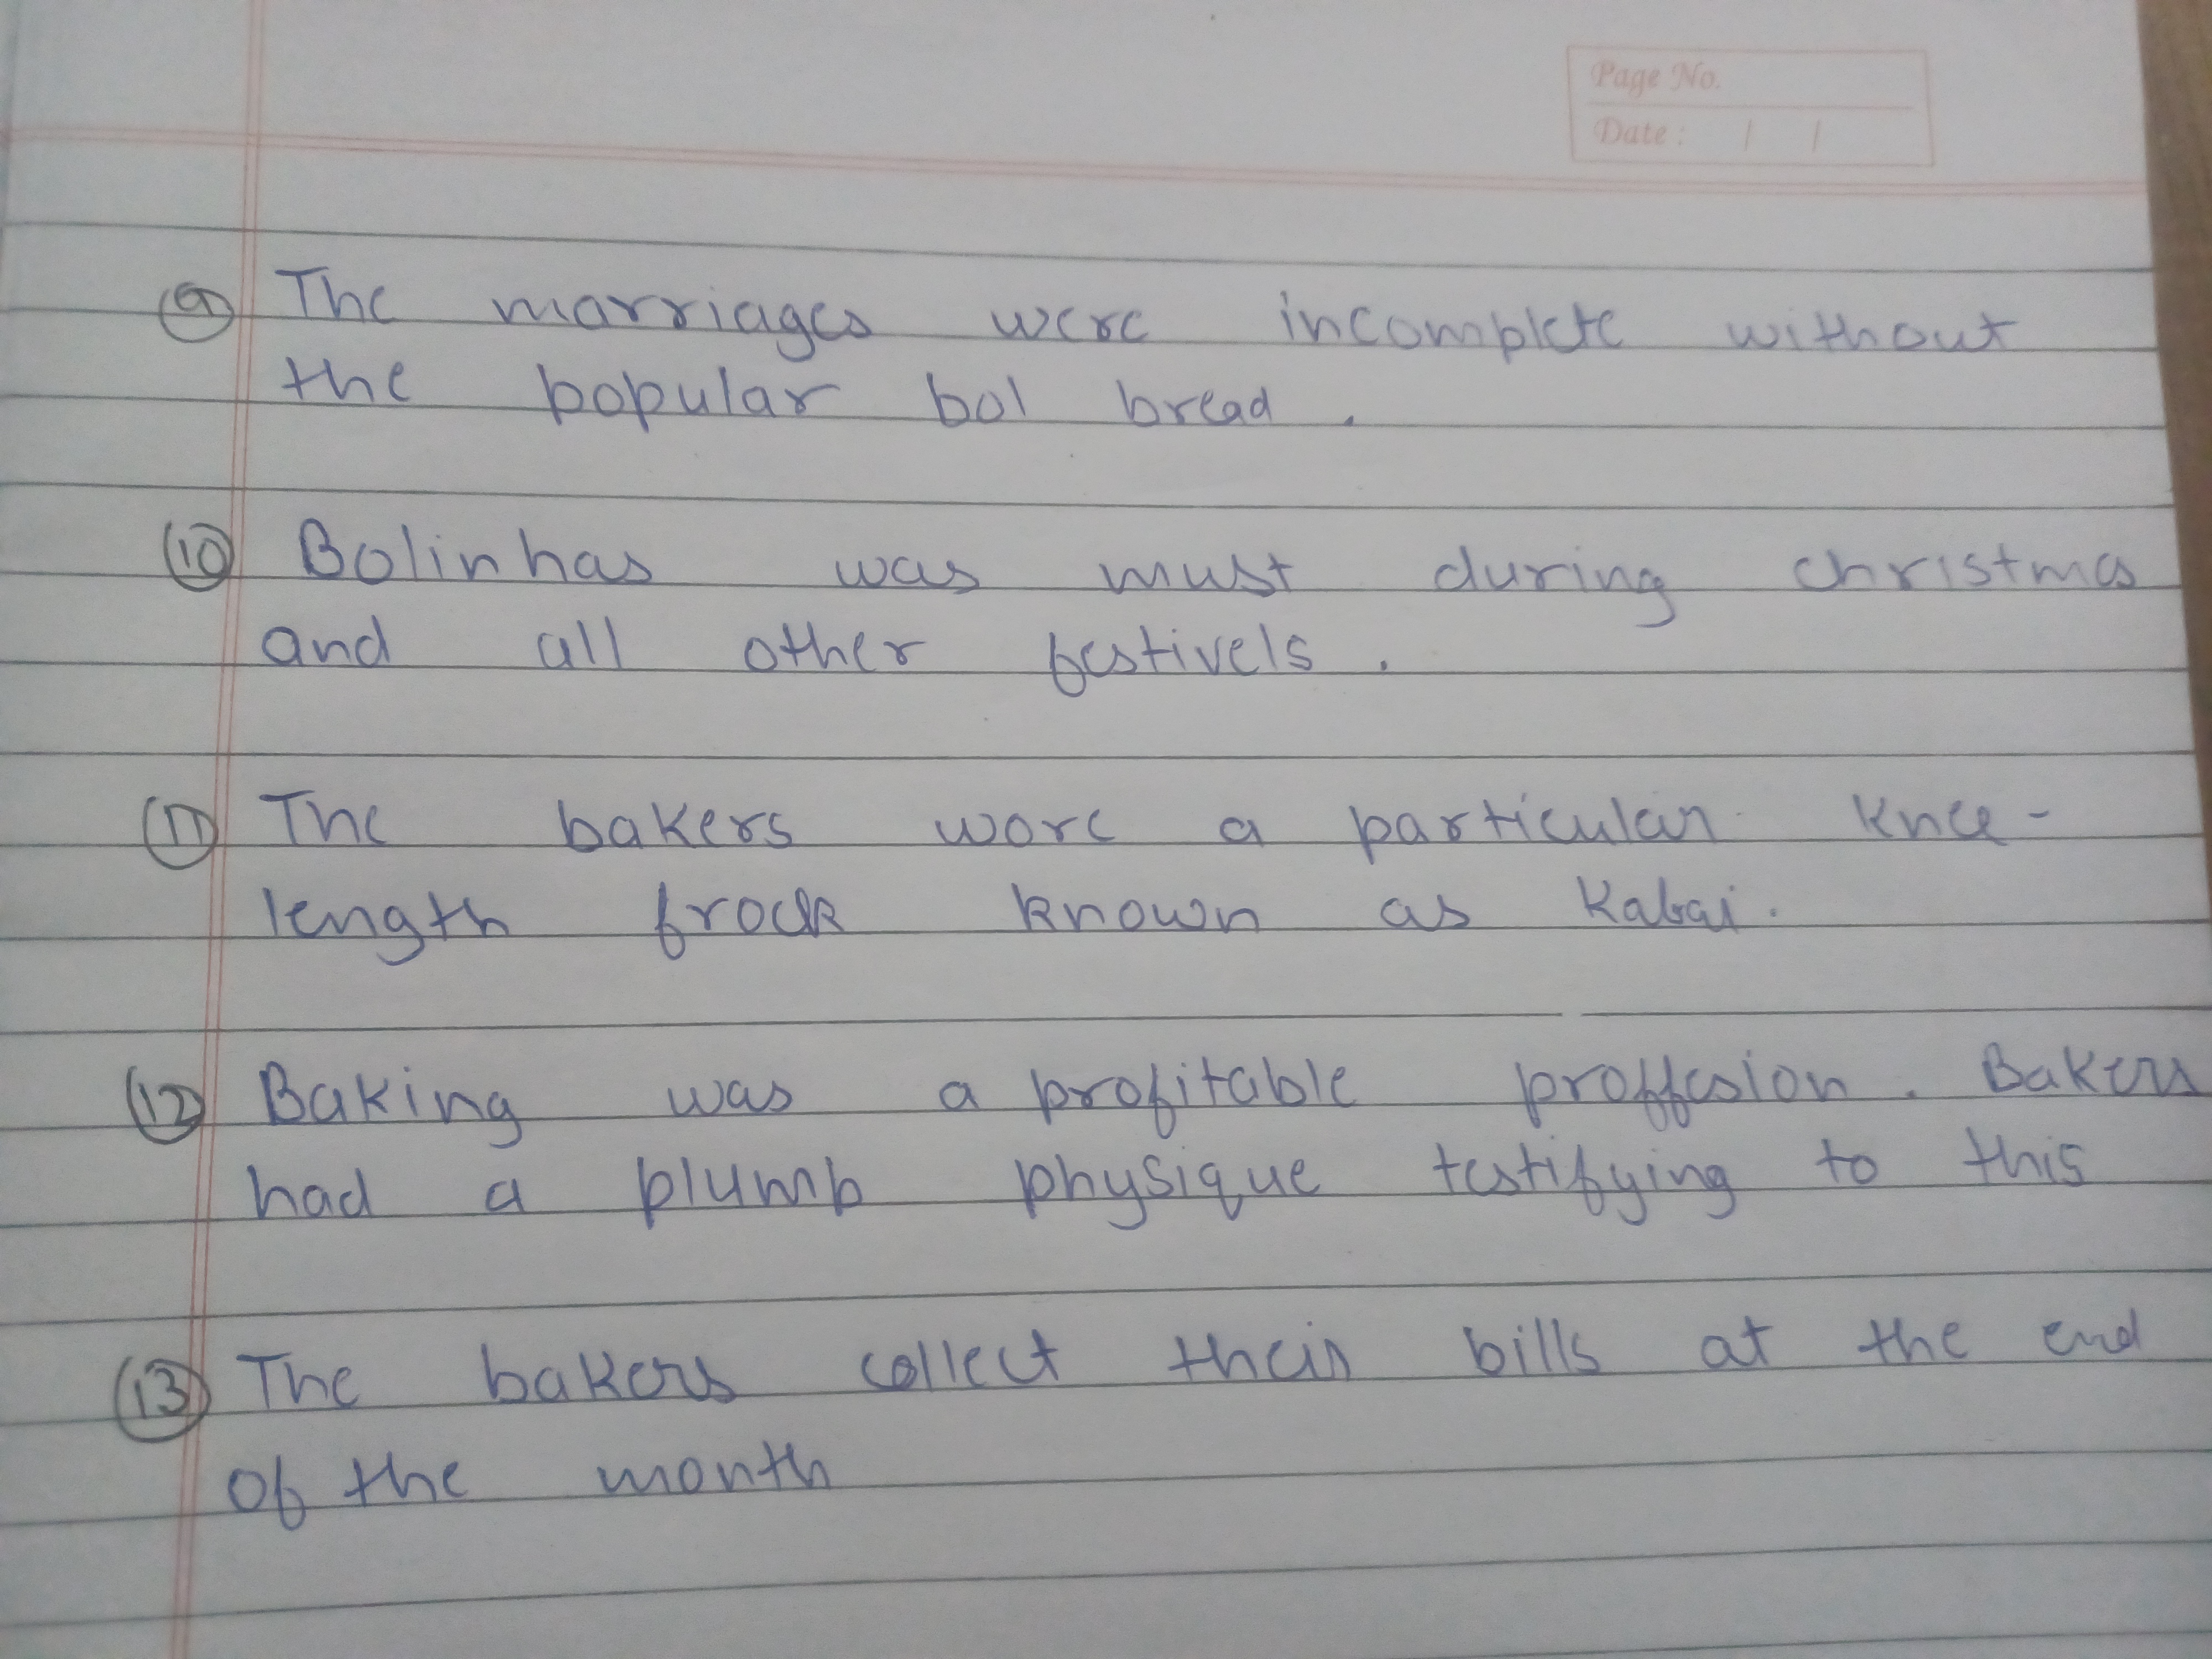 Page No.
Date : / /
9 The marriages were incomplete without
the popular bol bread .
10 Bolinhas was must during christmas
and all other festivels .
11 The bakers wore a particular knee-
length frock known as Kabai.
12 Baking was a profitable proffesion . Bakers
had a plumb physique testifying to this
13 The bakers collect their bills at the end
of the month